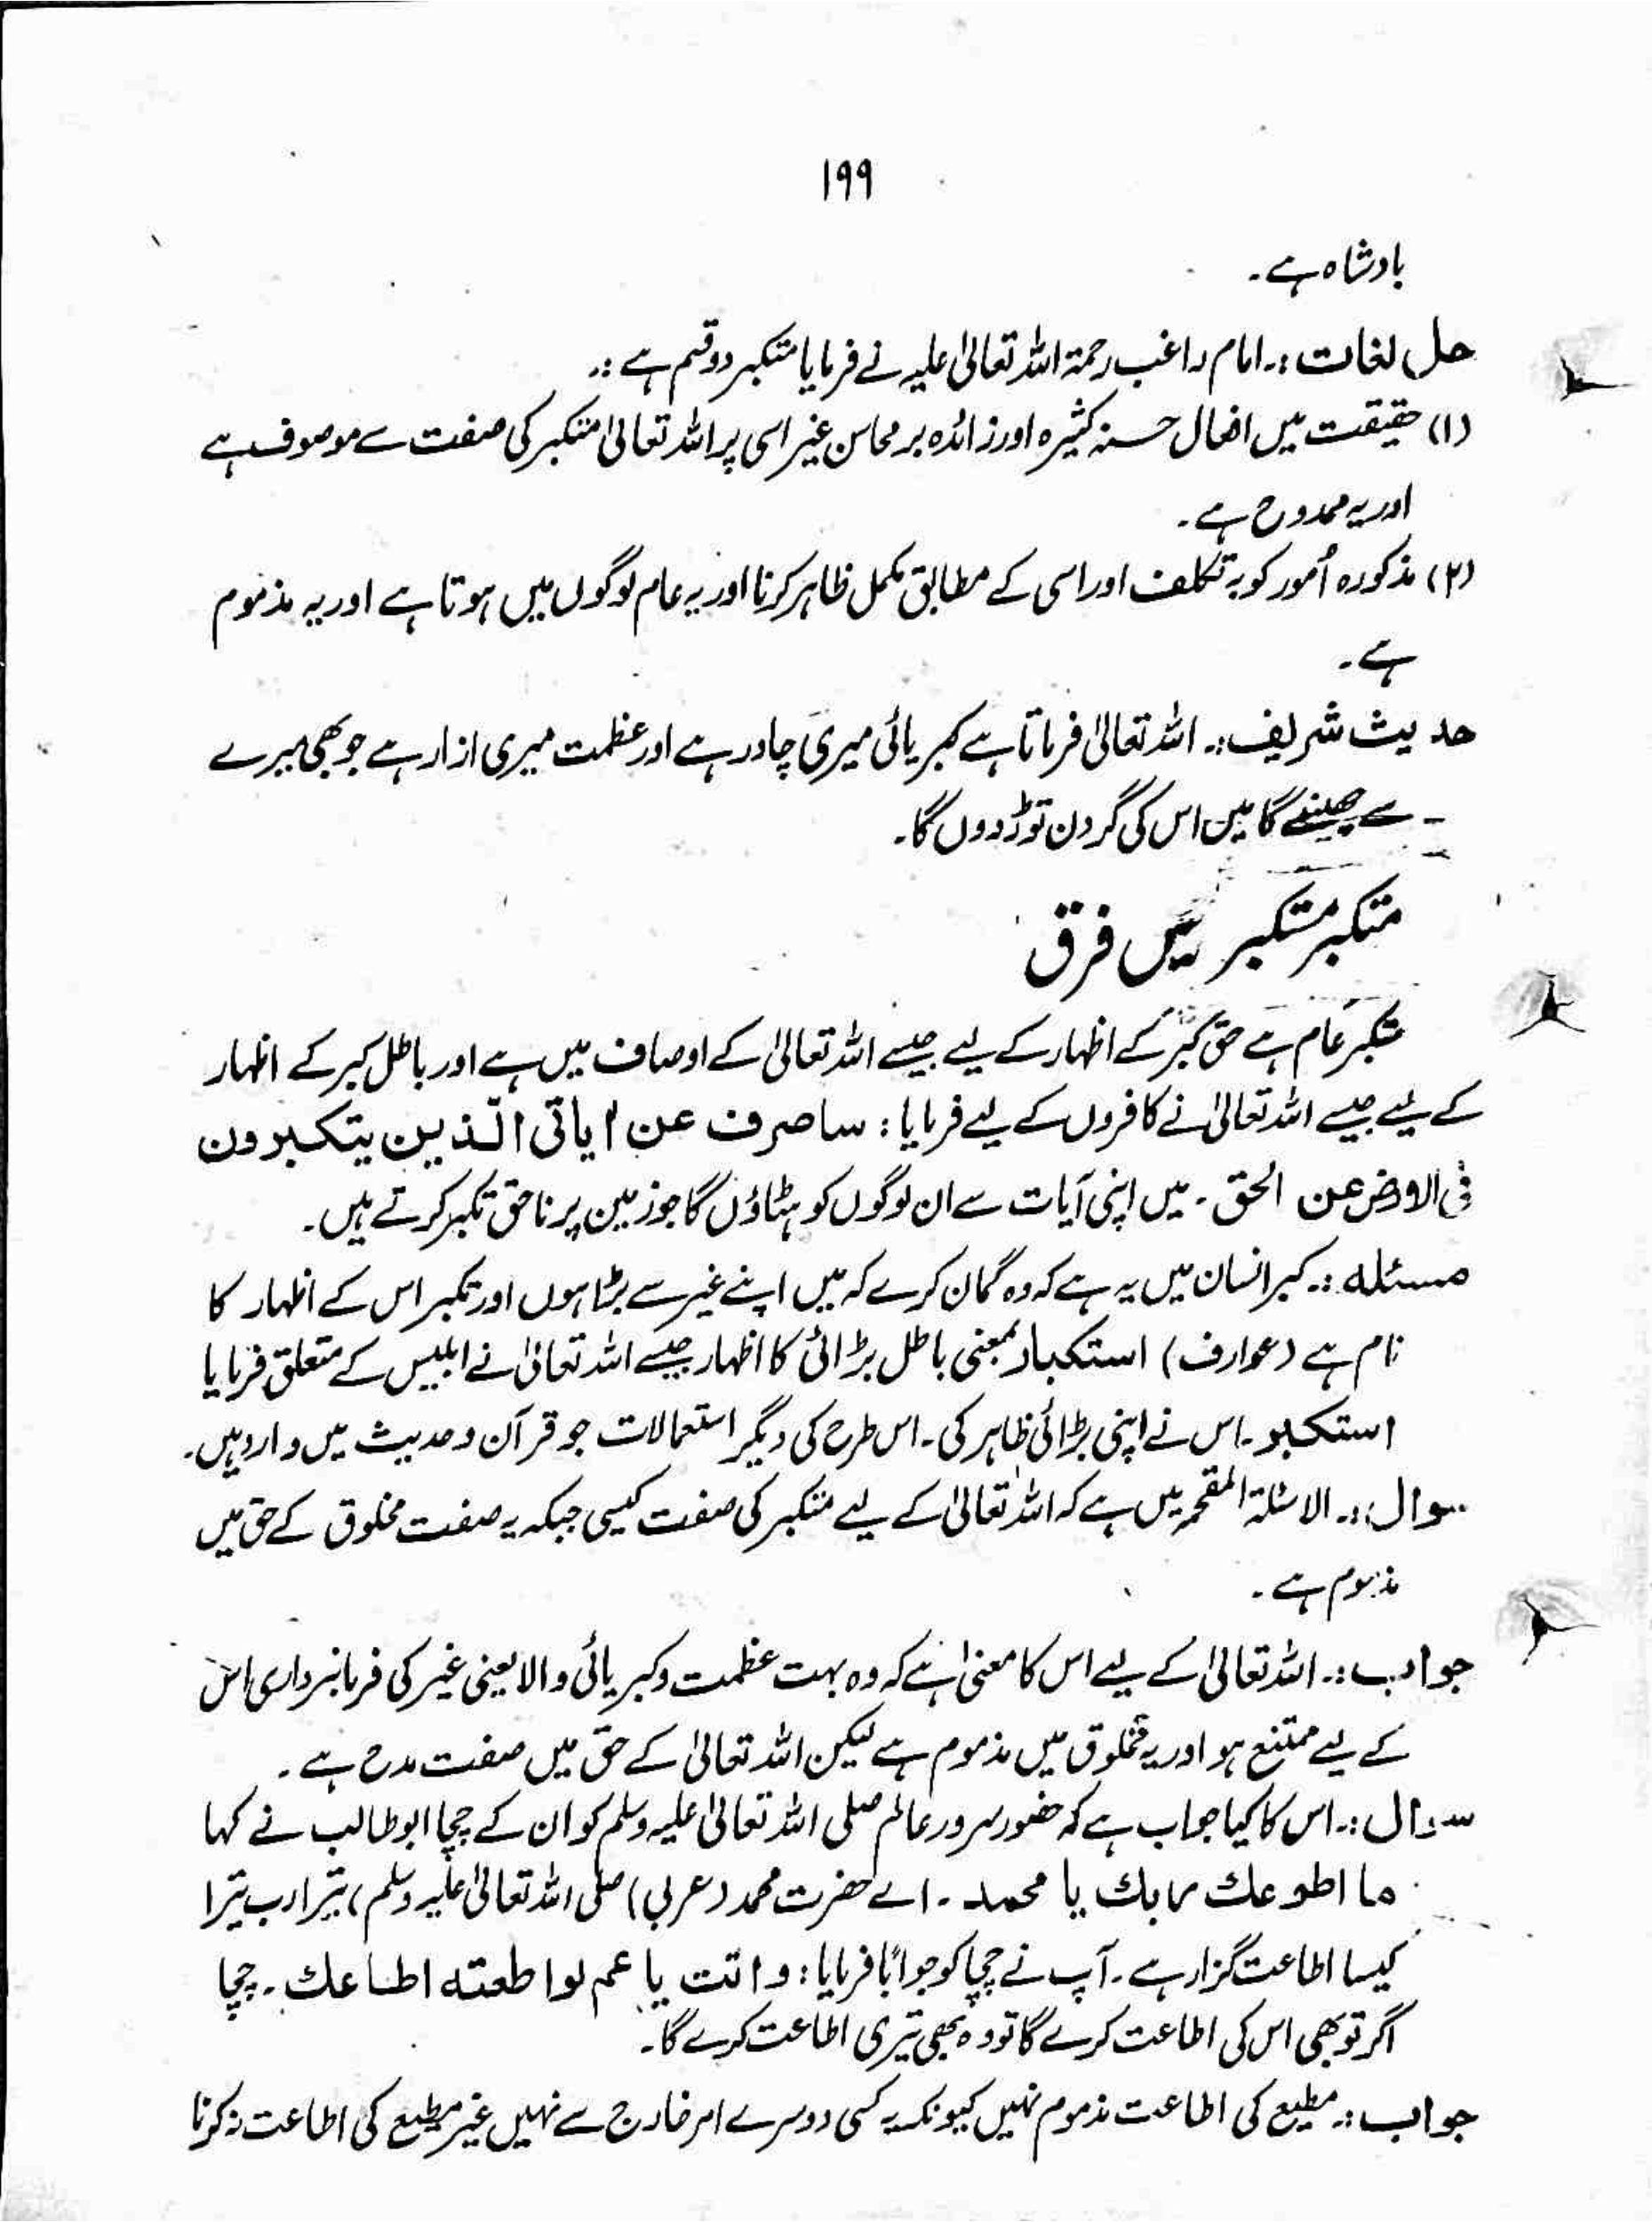 ۱۹۹
بادشاہ ہے۔
حل لغات :۔ امام راغب رحمۃ اللہ تعالیٰ علیہ نے فرمایا متکبر دو قسم ہے :۔
(۱) حقیقت میں افعال حسنہ کثیرہ اور زائدہ بر محاسن غیر اسی پر اللہ تعالیٰ متکبر کی صفت سے موصوف ہے
اور یہ ممدوح ہے۔
(۲) مذکورہ اُمور کو بہ تکلف اور اسی کے مطابق مکمل ظاہر کرنا اور یہ عام لوگوں میں ہوتا ہے اور یہ مذموم
ہے۔
حدیث شریف :۔ اللہ تعالیٰ فرماتا ہے کبریائی میری چادر ہے اور عظمت میری ازار ہے جو بھی میرے
سے چھینے گا میں اس کی گردن توڑ دوں گا۔
متکبر مستکبر میں فرق
متکبر عام ہے حق کبر کے اظہار کے لیے جیسے اللہ تعالیٰ کے اوصاف میں ہے اور باطل کبر کے اظہار
کے لیے جیسے اللہ تعالیٰ نے کافروں کے لیے فرمایا : ساصرف عن اٰیاتی الّذین یتکبرون
فی الارض عن الحق ۔ میں اپنی آیات سے ان لوگوں کو ہٹاؤں گا جو زمین پر ناحق تکبر کرتے ہیں۔
مسئلہ :۔ کبر انسان میں یہ ہے کہ وہ گمان کرے کہ میں اپنے غیر سے بڑا ہوں اور تکبر اس کے اظہار کا
نام ہے (عوارف) استکبار بمعنی باطل بڑائی کا اظہار جیسے اللہ تعالیٰ نے ابلیس کے متعلق فرمایا
استکبر ۔ اس نے اپنی بڑائی ظاہر کی ۔ اس طرح کی دیگر استعمالات جو قرآن و حدیث میں وارد ہیں۔
سوال :۔ الاسئلۃ المقحمہ میں ہے کہ اللہ تعالیٰ کے لیے متکبر کی صفت کیسی جبکہ یہ صفت مخلوق کے حق میں
مذموم ہے۔
جواب :۔ اللہ تعالیٰ کے لیے اس کا معنیٰ ہے کہ وہ بہت عظمت و کبریائی والا یعنی غیر کی فرمانبرداری اس
کے لیے ممتنع ہو اور یہ مخلوق میں مذموم ہے لیکن اللہ تعالیٰ کے حق میں صفت مدح ہے۔
سوال :۔ اس کا کیا جواب ہے کہ حضور سرور عالم صلی اللہ تعالیٰ علیہ وسلم کو ان کے چچا ابوطالب نے کہا
ما اطوعك ربك یا محمد ۔ اے حضرت محمد (عربی) صلی اللہ تعالیٰ علیہ وسلم، تیرا رب تیرا
کیسا اطاعت گزار ہے ۔ آپ نے چچا کو جواباً فرمایا : وانت یا عم لو اطعته اطاعك ۔ چچا
اگر تو بھی اس کی اطاعت کرے گا تو وہ بھی تیری اطاعت کرے گا۔
جواب :۔ مطیع کی اطاعت مذموم نہیں کیونکہ یہ کسی دوسرے امر خارج سے نہیں غیر مطیع کی اطاعت نہ کرنا